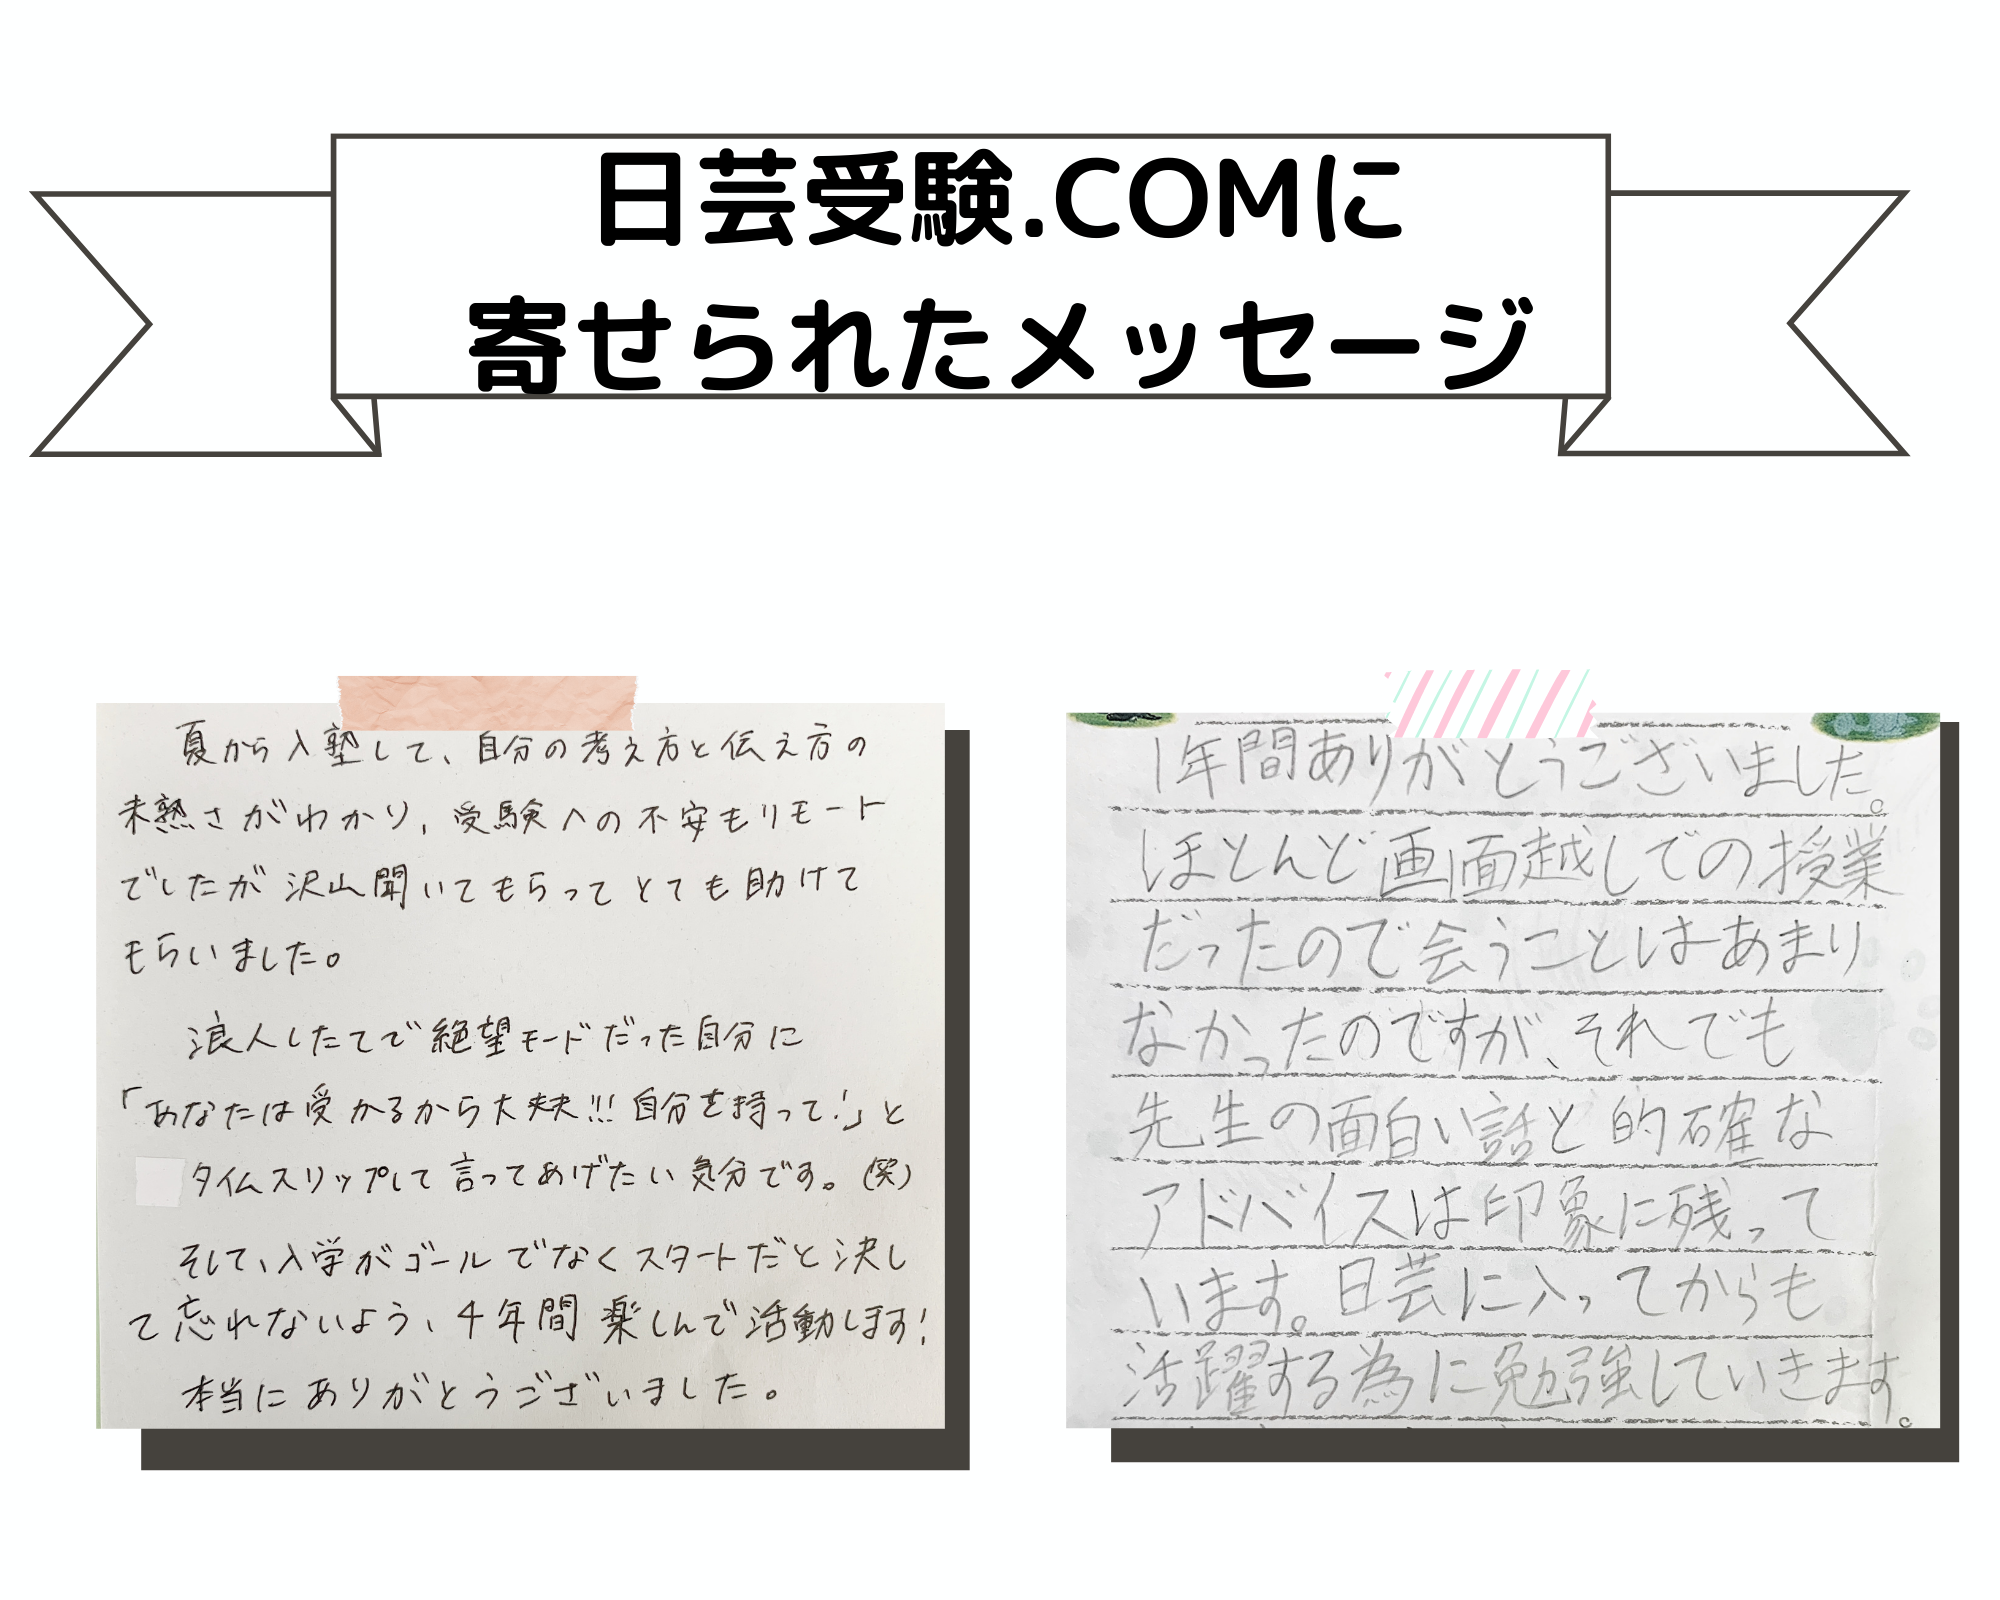 日芸受験.COMに
寄せられたメッセージ
夏から入塾して、自分の考え方と伝え方の
未熟さがわかり、受験への不安もリモート
でしたが沢山聞いてもらってとても助けて
もらいました。
浪人したてで絶望モードだった自分に
「あなたは受かるから大丈夫!!! 自分を持って!」と
タイムスリップして言ってあげたい気分です。(笑)
そして、入学がゴールでなくスタートだと決し
て忘れないよう、4年間楽しんで活動します!
本当にありがとうございました。
1年間ありがとうございました。
ほとんど画面越しでの授業
だったので会うことはあまり
なかったのですが、それでも
先生の面白い話と的確な
アドバイスは印象に残って
います。日芸に入ってからも
活躍する為に勉強していきます。